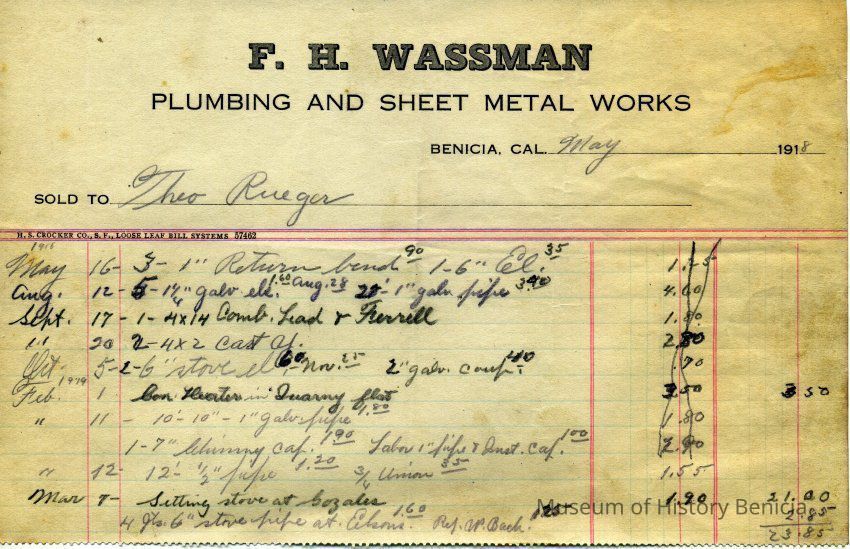 F. H. WASSMAN
PLUMBING AND SHEET METAL WORKS
BENICIA, CAL. May 1918
SOLD TO Theo Rueger
H. S. CROCKER CO., S. F., LOOSE LEAF BILL SYSTEMS 57462
1916
May 16- 3- 1" Return bend 90 1-6" El. 35 1.25
Aug. 12- 5- galv ell. 1.60 Aug. 28 1" galv pipe 4.60
Sept. 17- 1- 4x14 Comb. Lead & Ferrell 1.80
" 20 2- 4x2 cast 2.80
Oct. 5- 2- 6" stove el 60 Nov. 25 2" galv. coup. .70
Feb. 1 Con Heater in Quarny flat 3.50 3 50
" 11- 10'-10"- 1" galv. pipe 1.80 1.80
1-7" Chimny Cap. 1.90 Labor 1" pipe & Inst. Cap. 1.00 2.90
" 12- 12'- 1/2" pipe 1.20 3/4 Union 35 1.55
Mar 7- Setting stove at Gozales 1.90 21.00
4 Jts. 6" stove pipe at Elsons. 1.60 Rep. W. Bach. 1.25 2.85
23.85
Museum of History Benicia